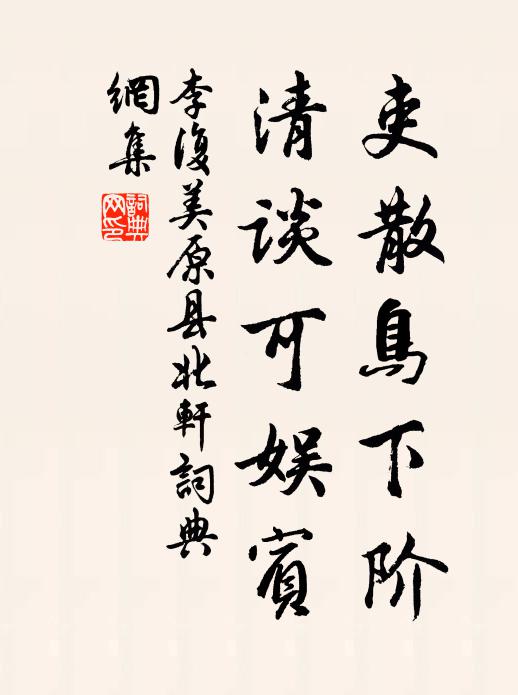 吏散鳥下阶
清谈可娱賓
李復美原县北軒詞典
網集
詞典
网印